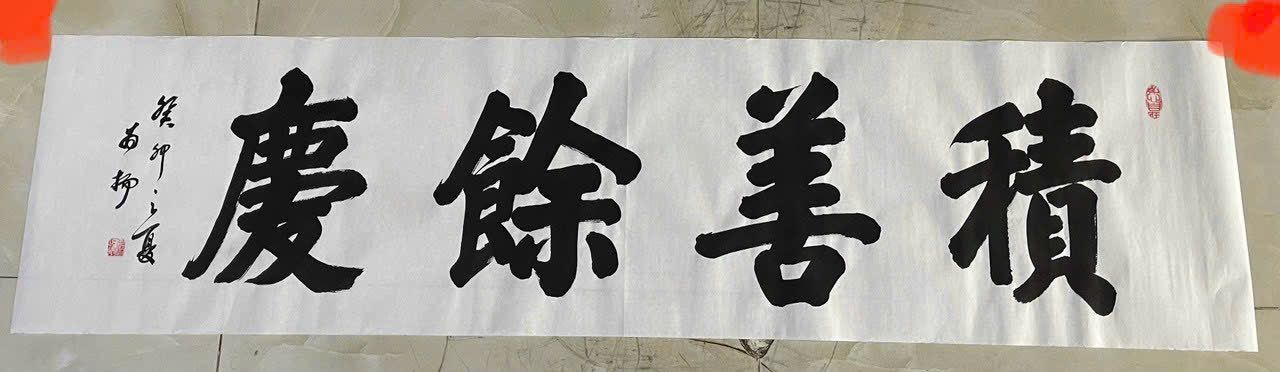 積善餘慶
癸卯之夏